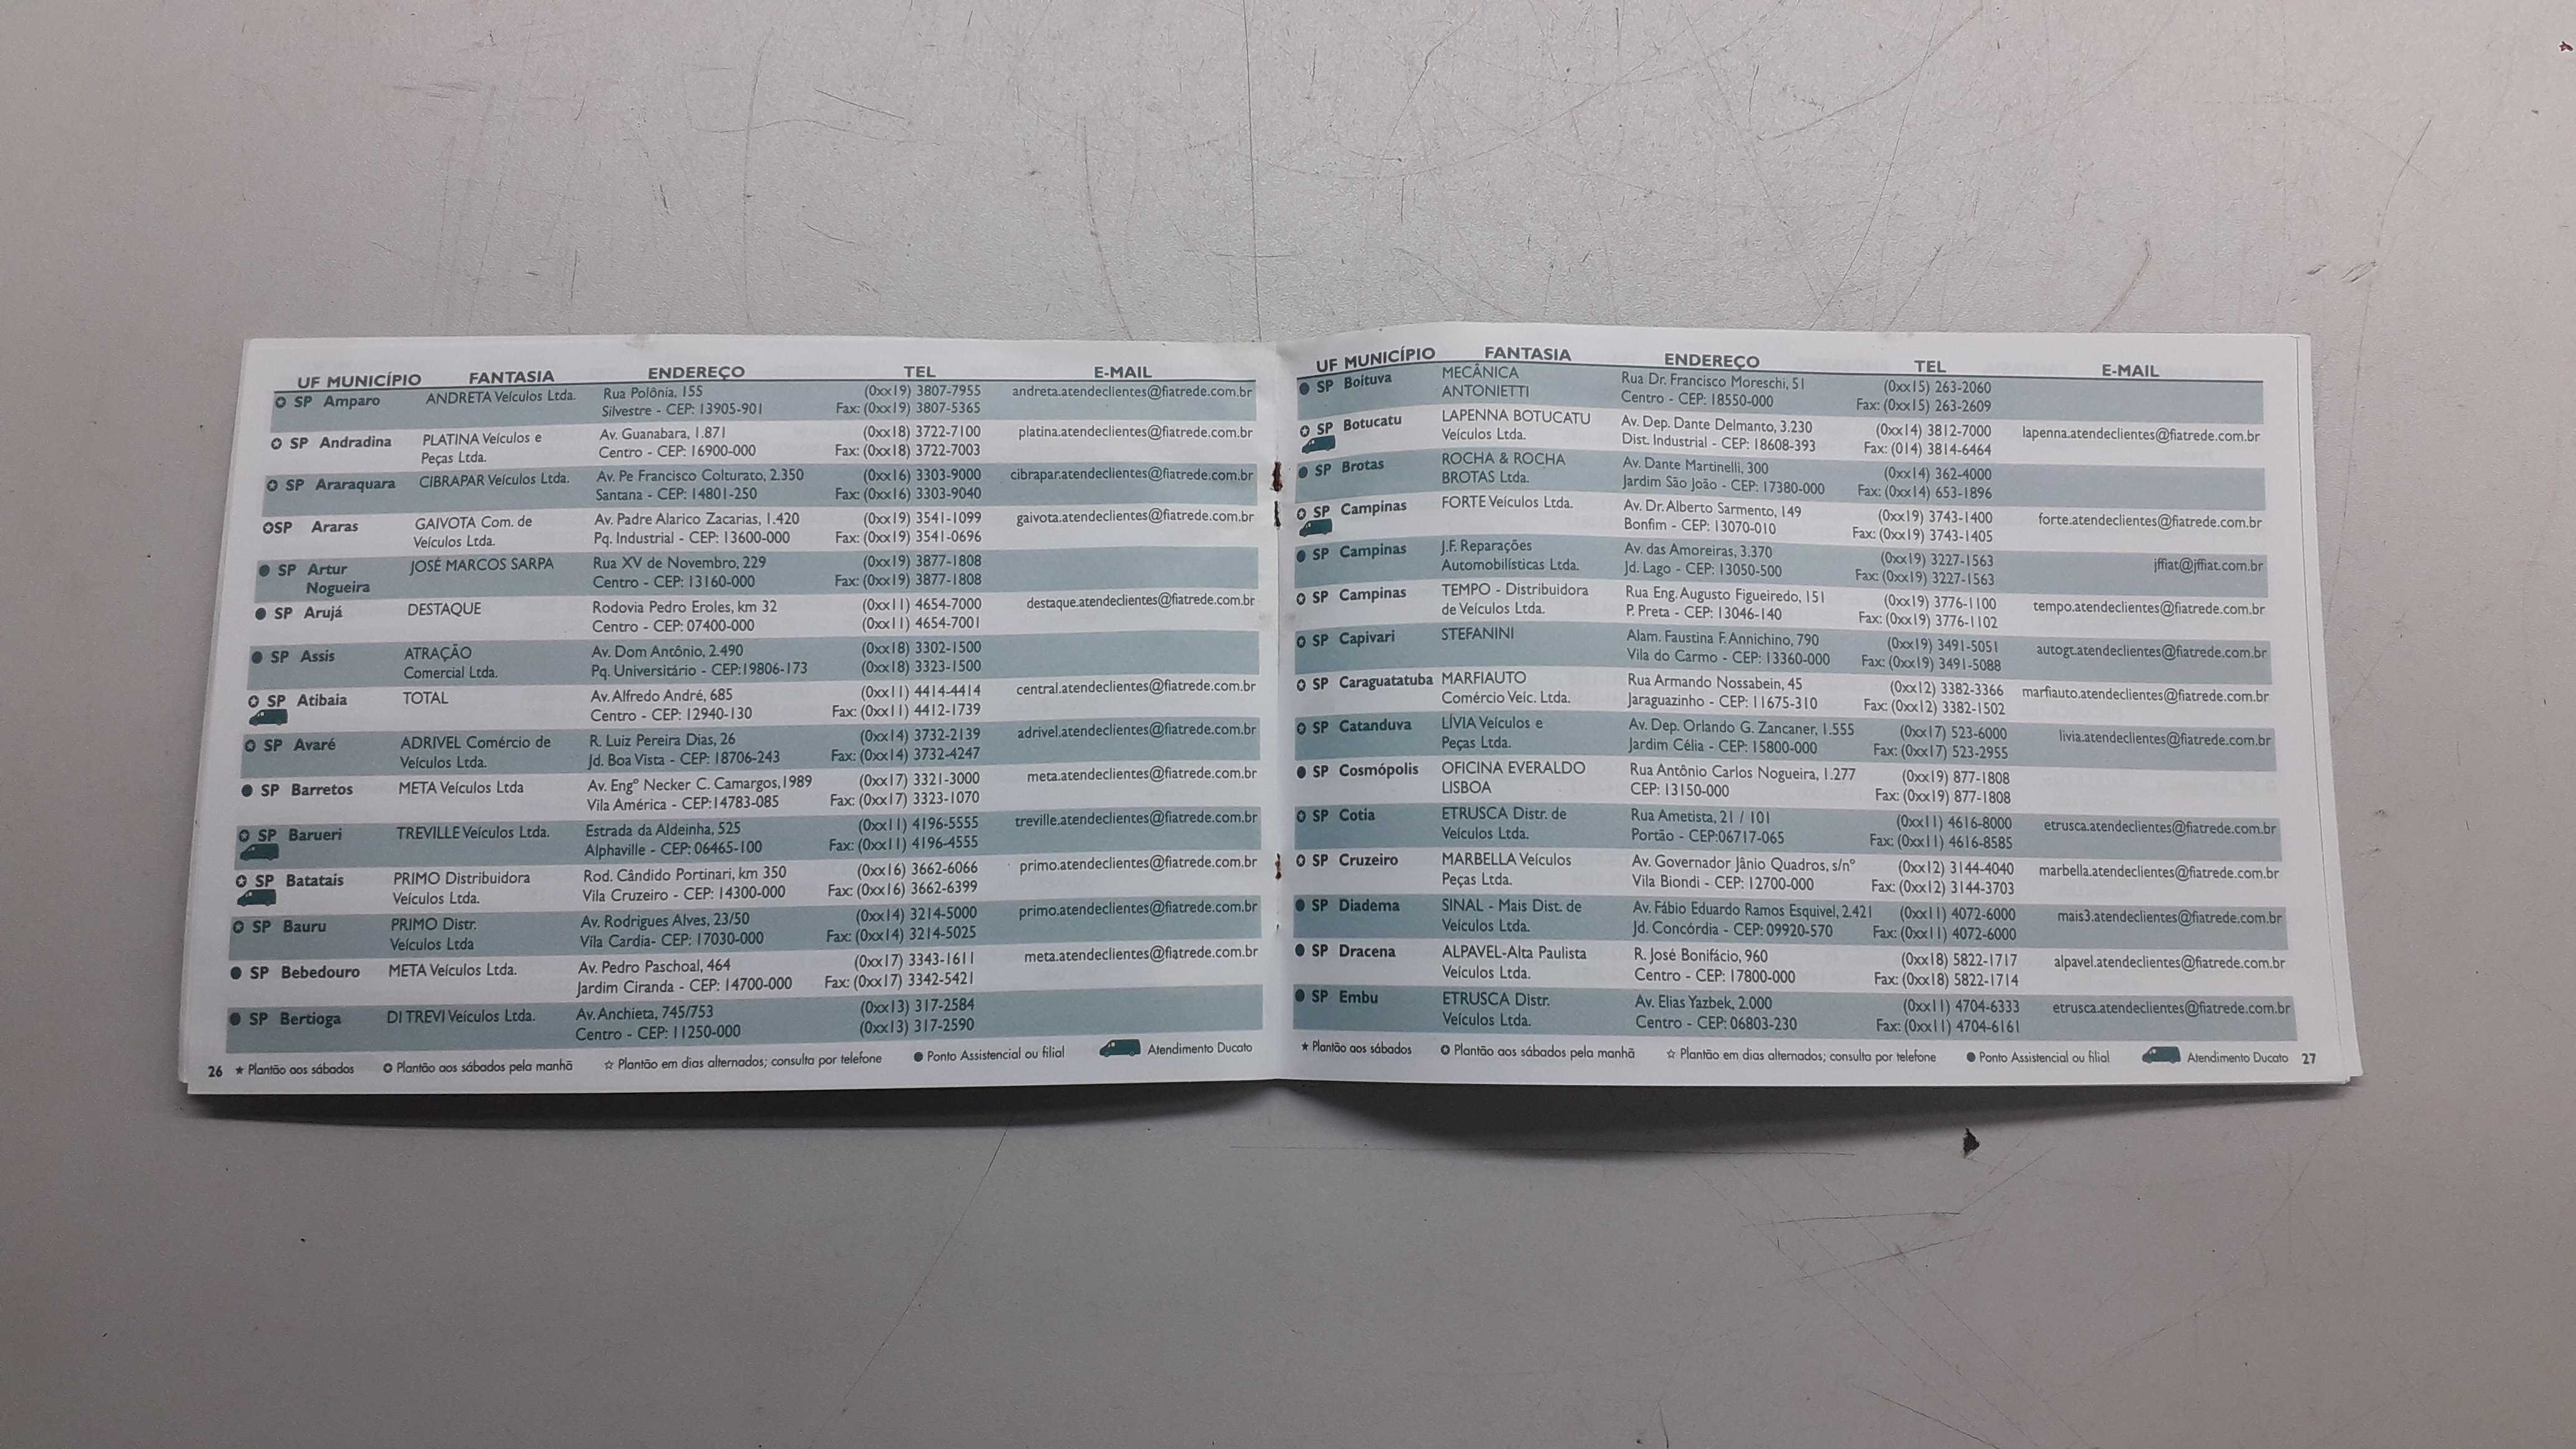 UF MUNICÍPIO FANTASIA ENDEREÇO TEL E-MAIL
✪ SP Amparo ANDRETA Veículos Ltda. Rua Polônia, 155 (0xx19) 3807-7955 andreta.atendeclientes@fiatrede.com.br
Silvestre - CEP: 13905-901 Fax: (0xx19) 3807-5365
✪ SP Andradina PLATINA Veículos e Av. Guanabara, 1.871 (0xx18) 3722-7100 platina.atendeclientes@fiatrede.com.br
Peças Ltda. Centro - CEP: 16900-000 Fax: (0xx18) 3722-7003
✪ SP Araraquara CIBRAPAR Veículos Ltda. Av. Pe Francisco Colturato, 2.350 (0xx16) 3303-9000 cibrapar.atendeclientes@fiatrede.com.br
Santana - CEP: 14801-250 Fax: (0xx16) 3303-9040
✪SP Araras GAIVOTA Com. de Av. Padre Alarico Zacarias, 1.420 (0xx19) 3541-1099 gaivota.atendeclientes@fiatrede.com.br
Veículos Ltda. Pq. Industrial - CEP: 13600-000 Fax: (0xx19) 3541-0696
● SP Artur JOSÉ MARCOS SARPA Rua XV de Novembro, 229 (0xx19) 3877-1808
Nogueira Centro - CEP: 13160-000 Fax: (0xx19) 3877-1808
● SP Arujá DESTAQUE Rodovia Pedro Eroles, km 32 (0xx11) 4654-7000 destaque.atendeclientes@fiatrede.com.br
Centro - CEP: 07400-000 (0xx11) 4654-7001
● SP Assis ATRAÇÃO Av. Dom Antônio, 2.490 (0xx18) 3302-1500
Comercial Ltda. Pq. Universitário - CEP:19806-173 (0xx18) 3323-1500
✪ SP Atibaia TOTAL Av. Alfredo André, 685 (0xx11) 4414-4414 central.atendeclientes@fiatrede.com.br
Centro - CEP: 12940-130 Fax: (0xx11) 4412-1739
✪ SP Avaré ADRIVEL Comércio de R. Luiz Pereira Dias, 26 (0xx14) 3732-2139 adrivel.atendeclientes@fiatrede.com.br
Veículos Ltda. Jd. Boa Vista - CEP: 18706-243 Fax: (0xx14) 3732-4247
● SP Barretos META Veículos Ltda Av. Engº Necker C. Camargos,1989 (0xx17) 3321-3000 meta.atendeclientes@fiatrede.com.br
Vila América - CEP:14783-085 Fax: (0xx17) 3323-1070
✪ SP Barueri TREVILLE Veículos Ltda. Estrada da Aldeinha, 525 (0xx11) 4196-5555 treville.atendeclientes@fiatrede.com.br
Alphaville - CEP: 06465-100 Fax: (0xx11) 4196-4555
✪ SP Batatais PRIMO Distribuidora Rod. Cândido Portinari, km 350 (0xx16) 3662-6066 primo.atendeclientes@fiatrede.com.br
Veículos Ltda. Vila Cruzeiro - CEP: 14300-000 Fax: (0xx16) 3662-6399
✪ SP Bauru PRIMO Distr. Av. Rodrigues Alves, 23/50 (0xx14) 3214-5000 primo.atendeclientes@fiatrede.com.br
Veículos Ltda Vila Cardia- CEP: 17030-000 Fax: (0xx14) 3214-5025
● SP Bebedouro META Veículos Ltda. Av. Pedro Paschoal, 464 (0xx17) 3343-1611 meta.atendeclientes@fiatrede.com.br
Jardim Ciranda - CEP: 14700-000 Fax: (0xx17) 3342-5421
● SP Bertioga DI TREVI Veículos Ltda. Av. Anchieta, 745/753 (0xx13) 317-2584
Centro - CEP: 11250-000 (0xx13) 317-2590
26 ★ Plantão aos sábados ✪ Plantão aos sábados pela manhã ☆ Plantão em dias alternados; consulta por telefone ● Ponto Assistencial ou filial Atendimento Ducato
UF MUNICÍPIO FANTASIA ENDEREÇO TEL E-MAIL
● SP Boituva MECÂNICA Rua Dr. Francisco Moreschi, 51 (0xx15) 263-2060
ANTONIETTI Centro - CEP: 18550-000 Fax: (0xx15) 263-2609
✪ SP Botucatu LAPENNA BOTUCATU Av. Dep. Dante Delmanto, 3.230 (0xx14) 3812-7000 lapenna.atendeclientes@fiatrede.com.br
Veículos Ltda. Dist. Industrial - CEP: 18608-393 Fax: (014) 3814-6464
● SP Brotas ROCHA & ROCHA Av. Dante Martinelli, 300 (0xx14) 362-4000
BROTAS Ltda. Jardim São João - CEP: 17380-000 Fax: (0xx14) 653-1896
✪ SP Campinas FORTE Veículos Ltda. Av. Dr. Alberto Sarmento, 149 (0xx19) 3743-1400 forte.atendeclientes@fiatrede.com.br
Bonfim - CEP: 13070-010 Fax: (0xx19) 3743-1405
● SP Campinas J.F. Reparações Av. das Amoreiras, 3.370 (0xx19) 3227-1563 jffiat@jffiat.com.br
Automobilísticas Ltda. Jd. Lago - CEP: 13050-500 Fax: (0xx19) 3227-1563
✪ SP Campinas TEMPO - Distribuidora Rua Eng. Augusto Figueiredo, 151 (0xx19) 3776-1100 tempo.atendeclientes@fiatrede.com.br
de Veículos Ltda. P. Preta - CEP: 13046-140 Fax: (0xx19) 3776-1102
✪ SP Capivari STEFANINI Alam. Faustina F. Annichino, 790 (0xx19) 3491-5051 autogt.atendeclientes@fiatrede.com.br
Vila do Carmo - CEP: 13360-000 Fax: (0xx19) 3491-5088
✪ SP Caraguatatuba MARFIAUTO Rua Armando Nossabein, 45 (0xx12) 3382-3366 marfiauto.atendeclientes@fiatrede.com.br
Comércio Veíc. Ltda. Jaraguazinho - CEP: 11675-310 Fax: (0xx12) 3382-1502
✪ SP Catanduva LÍVIA Veículos e Av. Dep. Orlando G. Zancaner, 1.555 (0xx17) 523-6000 livia.atendeclientes@fiatrede.com.br
Peças Ltda. Jardim Célia - CEP: 15800-000 Fax: (0xx17) 523-2955
● SP Cosmópolis OFICINA EVERALDO Rua Antônio Carlos Nogueira, 1.277 (0xx19) 877-1808
LISBOA CEP: 13150-000 Fax: (0xx19) 877-1808
✪ SP Cotia ETRUSCA Distr. de Rua Ametista, 21 / 101 (0xx11) 4616-8000 etrusca.atendeclientes@fiatrede.com.br
Veículos Ltda. Portão - CEP:06717-065 Fax: (0xx11) 4616-8585
✪ SP Cruzeiro MARBELLA Veículos Av. Governador Jânio Quadros, s/nº (0xx12) 3144-4040 marbella.atendeclientes@fiatrede.com.br
Peças Ltda. Vila Biondi - CEP: 12700-000 Fax: (0xx12) 3144-3703
● SP Diadema SINAL - Mais Dist. de Av. Fábio Eduardo Ramos Esquivel, 2.421 (0xx11) 4072-6000 mais3.atendeclientes@fiatrede.com.br
Veículos Ltda. Jd. Concórdia - CEP: 09920-570 Fax: (0xx11) 4072-6000
● SP Dracena ALPAVEL-Alta Paulista R. José Bonifácio, 960 (0xx18) 5822-1717 alpavel.atendeclientes@fiatrede.com.br
Veículos Ltda. Centro - CEP: 17800-000 Fax: (0xx18) 5822-1714
● SP Embu ETRUSCA Distr. Av. Elias Yazbek, 2.000 (0xx11) 4704-6333 etrusca.atendeclientes@fiatrede.com.br
Veículos Ltda. Centro - CEP: 06803-230 Fax: (0xx11) 4704-6161
★ Plantão aos sábados ✪ Plantão aos sábados pela manhã ☆ Plantão em dias alternados; consulta por telefone ● Ponto Assistencial ou filial Atendimento Ducato 27